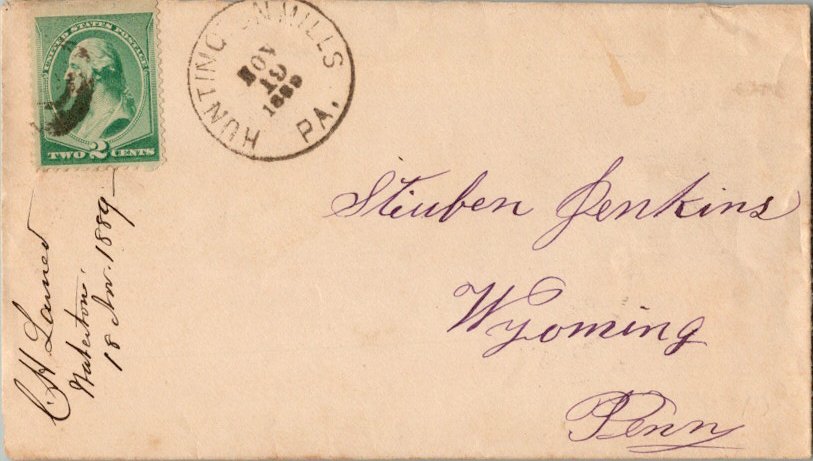 UNITED STATES POSTAGE
TWO 2 CENTS
HUNTINGTON MILLS
NOV
19
1889
PA.
Steuben Jenkins
Wyoming
Penny
C H Larned
Waterton.
18 Nov. 1889